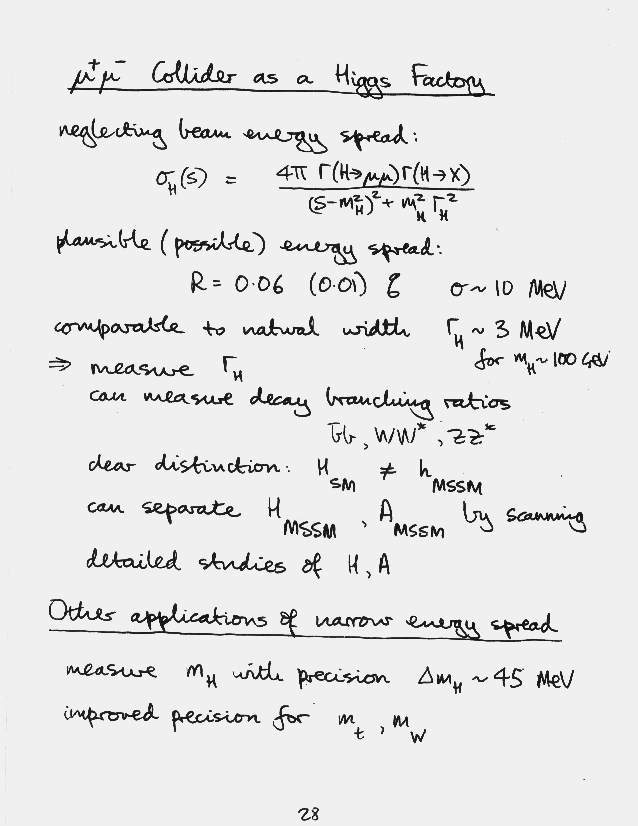 μ⁺μ⁻ Collider as a Higgs Factory
neglecting beam energy spread:
σ_H(s) = 4π Γ(H→μμ)Γ(H→X) / (s-m_H²)² + m_H² Γ_H²
plausible (possible) energy spread:
R = 0.06 (0.01) % σ ~ 10 MeV
comparable to natural width Γ_H ~ 3 MeV
for m_H ~ 100 GeV
⇒ measure Γ_H
can measure decay branching ratios
b̄b, WW*, ZZ*
clear distinction: H_SM ≠ h_MSSM
can separate H_MSSM, A_MSSM by scanning
detailed studies of H, A
Other applications of narrow energy spread
measure m_H with precision Δm_H ~ 45 MeV
improved precision for m_t, m_W
28